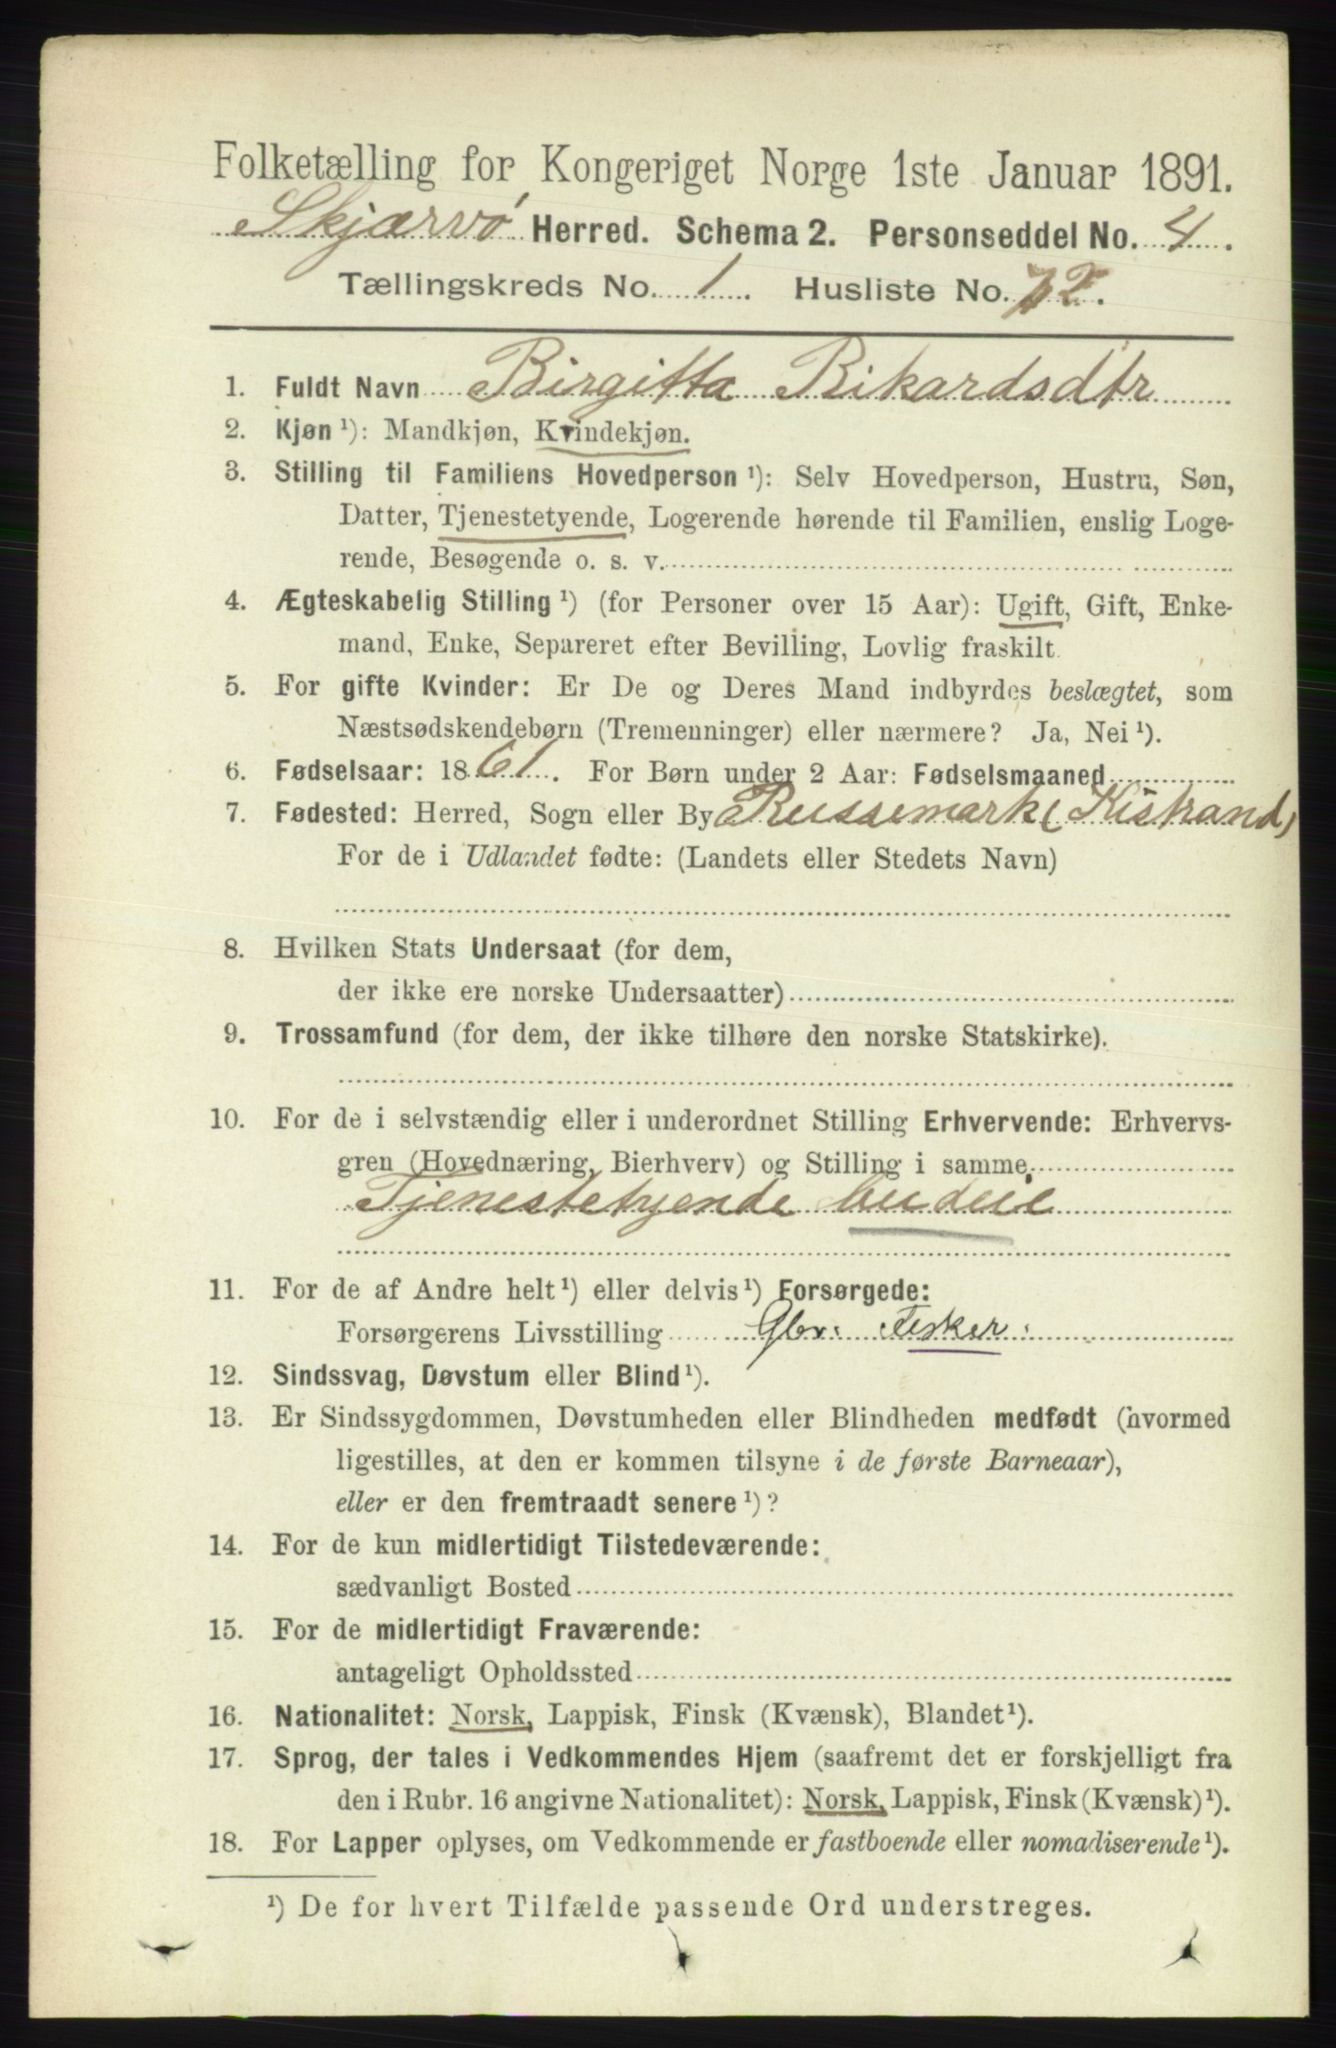 Folketælling for Kongeriget Norge 1ste Januar 1891.
Skjærvö Herred. Schema 2. Personseddel No. 4.
Tællingskreds No. 1. Husliste No. 12.
1. Fuldt Navn Birgitta Rikardsdtr
2. Kjøn ¹): Mandkjøn, Kvindekjøn.
3. Stilling til Familiens Hovedperson ¹): Selv Hovedperson, Hustru, Søn,
Datter, Tjenestetyende, Logerende hørende til Familien, enslig Loge-
rende, Besøgende o. s. v.
4. Ægteskabelig Stilling ¹) (for Personer over 15 Aar): Ugift, Gift, Enke-
mand, Enke, Separeret efter Bevilling, Lovlig fraskilt.
5. For gifte Kvinder: Er De og Deres Mand indbyrdes beslægtet, som
Næstsødskendebørn (Tremenninger) eller nærmere? Ja, Nei ¹).
6. Fødselsaar: 1861. For Børn under 2 Aar: Fødselsmaaned
7. Fødested: Herred, Sogn eller By Russemark (Kistrand)
For de i Udlandet fødte: (Landets eller Stedets Navn)
8. Hvilken Stats Undersaat (for dem,
der ikke ere norske Undersaatter)
9. Trossamfund (for dem, der ikke tilhøre den norske Statskirke).
10. For de i selvstændig eller i underordnet Stilling Erhvervende: Erhvervs-
gren (Hovednæring, Bierhverv) og Stilling i samme
Tjenestetyende budeie
11. For de af Andre helt ¹) eller delvis ¹) Forsørgede:
Forsørgerens Livsstilling Gbr. Fisker.
12. Sindssvag, Døvstum eller Blind ¹).
13. Er Sindssygdommen, Døvstumheden eller Blindheden medfødt (hvormed
ligestilles, at den er kommen tilsyne i de første Barneaar),
eller er den fremtraadt senere ¹)?
14. For de kun midlertidigt Tilstedeværende:
sædvanligt Bosted
15. For de midlertidigt Fraværende:
antageligt Opholdssted
16. Nationalitet: Norsk, Lappisk, Finsk (Kvænsk), Blandet ¹).
17. Sprog, der tales i Vedkommendes Hjem (saafremt det er forskjelligt fra
den i Rubr. 16 angivne Nationalitet): Norsk, Lappisk, Finsk (Kvænsk) ¹).
18. For Lapper oplyses, om Vedkommende er fastboende eller nomadiserende ¹).
¹) De for hvert Tilfælde passende Ord understreges.